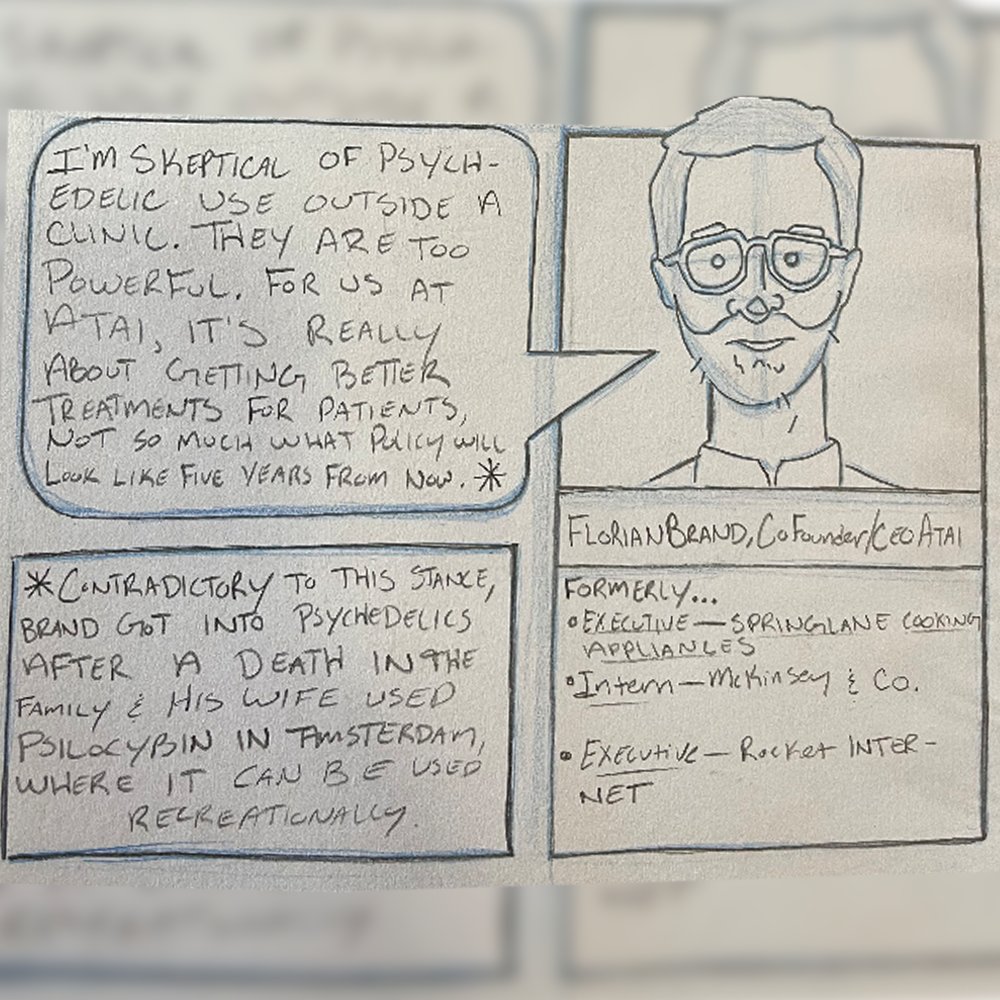 I'M SKEPTICAL OF PSYCH-
EDELIC USE OUTSIDE A
CLINIC. THEY ARE TOO
POWERFUL. FOR US AT
ATAI, IT'S REALLY
ABOUT GETTING BETTER
TREATMENTS FOR PATIENTS,
NOT SO MUCH WHAT POLICY WILL
LOOK LIKE FIVE YEARS FROM NOW. *
* CONTRADICTORY TO THIS STANCE,
BRAND GOT INTO PSYCHEDELICS
AFTER A DEATH IN THE
FAMILY & HIS WIFE USED
PSILOCYBIN IN AMSTERDAM,
WHERE IT CAN BE USED
RECREATIONALLY.
FLORIAN BRAND, CoFounder/CEO ATAI
FORMERLY...
• EXECUTIVE — SPRINGLANE COOKING
APPLIANCES
• Intern — McKinsey & Co.
• Executive — Rocket INTER-
NET